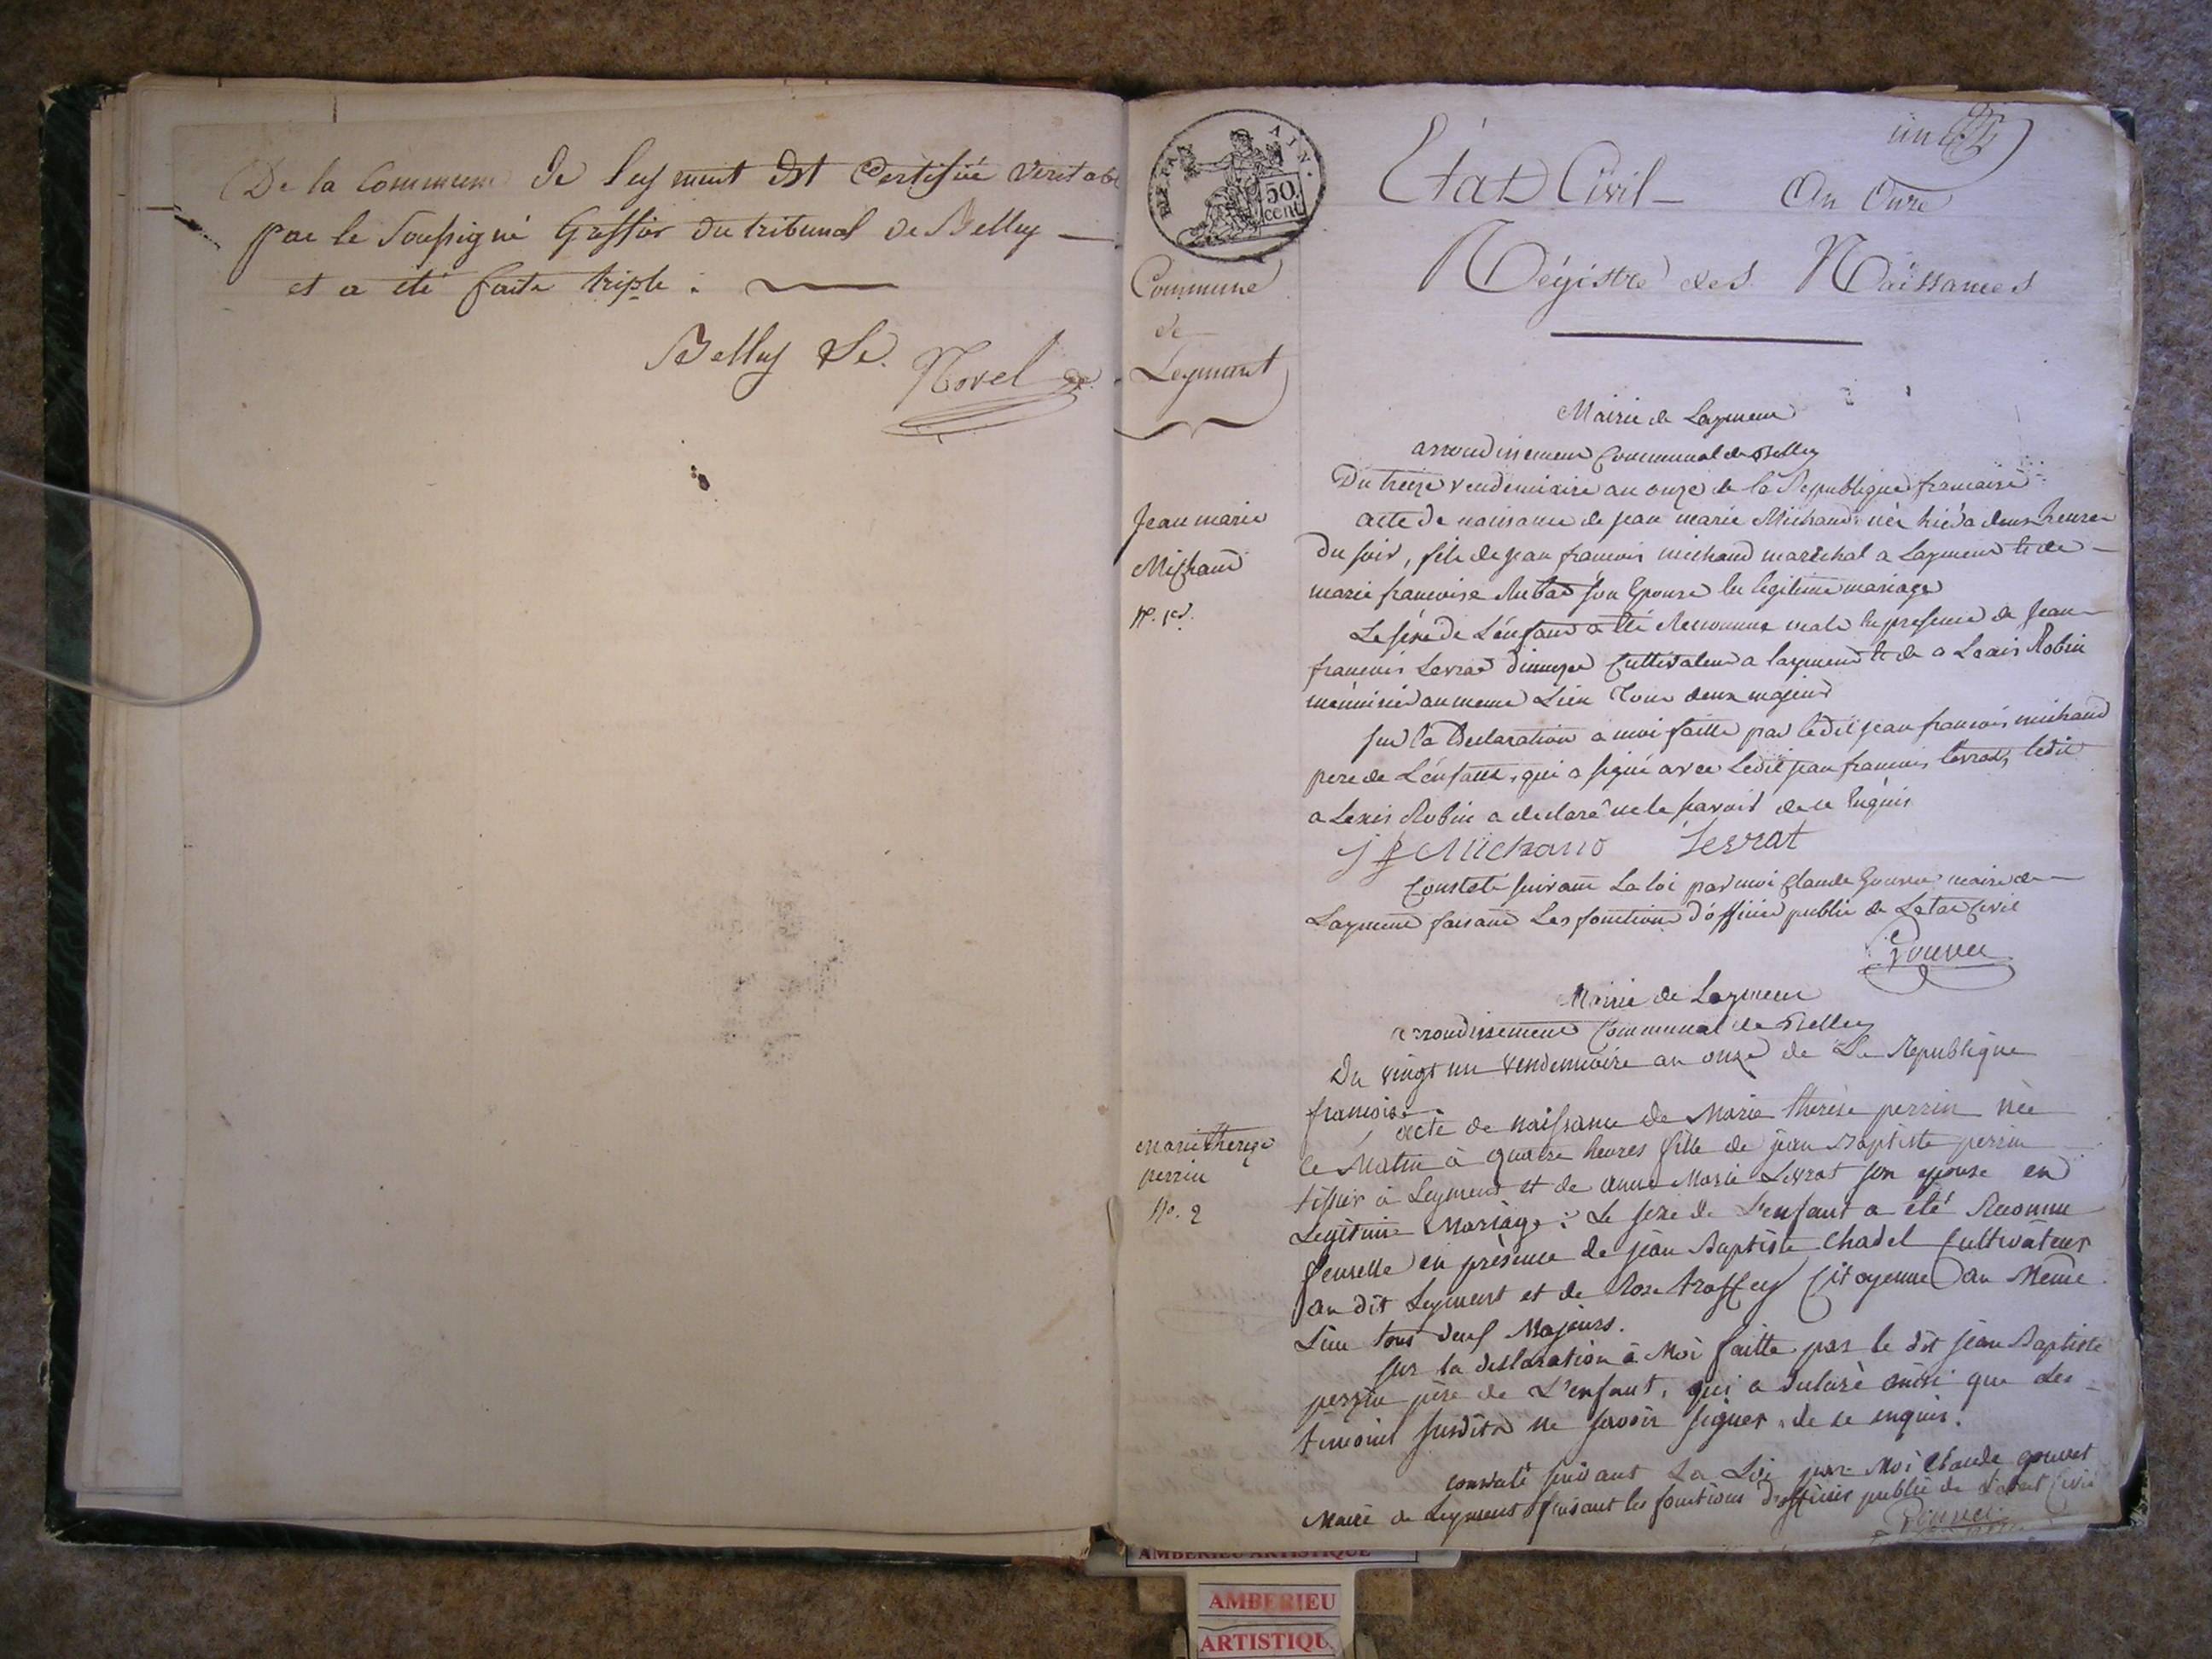 De la Commune de Leyment Est Certifiée Veritab
par le Soussigné Greffier du tribunal de Belley —
et a été faite triple .
Belley le. Morel
DEP. AIN.
50
cent
Commune
de
Leyment
État Civil — An Onze
Régistre des Naissances
Mairie de Layment
arrondissement Communal de Belley
Du treize vendemiaire an onze de la Republique francaise
Jean marie
Michaud
N°. 1er.
acte de naissance de jean marie Michaud née hier a deux heures
du soir, fils de jean francois michaud maréchal a Layment et de
marie francoise Rubat son Epouse en legitime mariage
Le sexe de L'enfant a été Reconnue male en presence de Jean
francois Levrat Cultivateur a layment et de a Lexis Robin
menuisier au meme Lieu Tous deux majeurs
sur la Declaration a moi faitte par ledit jean francois michaud
pere de L'enfant, qui a signé avec Ledit jean francois levrat, ledit
a Lexis Robin a declaré ne le savoir de ce Enquis
j f Michaud levrat
Constaté suivant La loi par moi Claude Gouvet maire de
Layment faisant Les fonctions d'officier public de Letat Civil
Gouvet
Mairie de Layment
arrondissement Communal de Belley
Du vingt un vendemiaire an onze de La Republique
francoise.
Marie thereze
perrin
No. 2
acte de naissance de Marie thérèse perrin née
le Matin à quatre heures fille de jean Baptiste perrin
tissier à Leyment et de anne Marie Levrat son epouse en
Legitime Mariage : Le sexe de L'enfant a été Reconnu
femelle en présence de jean Baptiste Chadel Cultivateur
au dit Leyment et de Roze Citoyenne au Meme
Lieu tous deux Majeurs.
sur la declaration à Moi faitte par le dit jean Baptiste
perrin père de L'enfant, qui a declaré ainsi que les
temoins susdits ne savoir signer de ce enquis.
Constaté suivant La Loi par Moi Claude gouvet
Maire de Leyment faisant les fonctions d'officier public de L'etat Civil
Gouvet
AMBERIEU ARTISTIQUE
AMBERIEU
ARTISTIQU